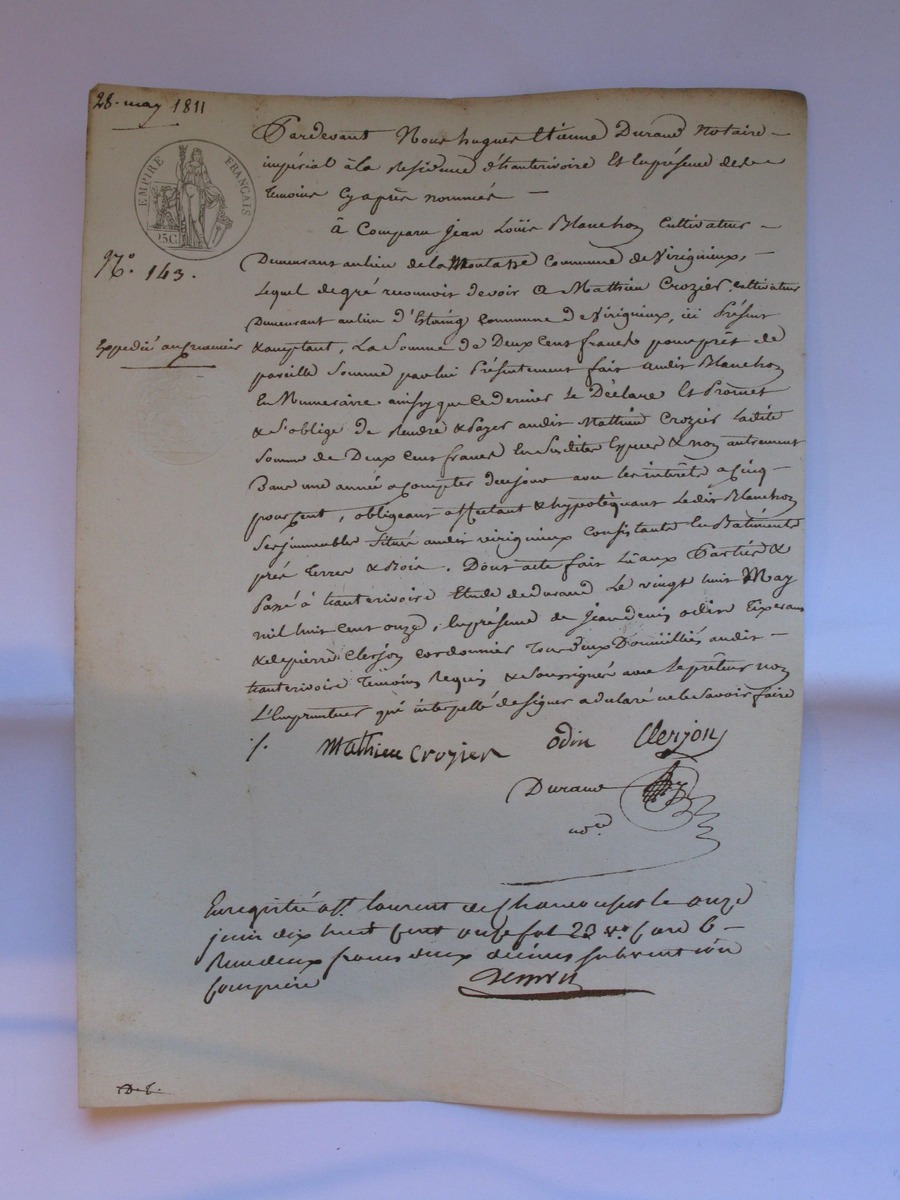 28. may 1811
EMPIRE FRANÇAIS
25C
N.º 143.
Expedié au premier
Pardevant Nous hugues Etienne Durand Notaire
impérial à la Residence d'hauterivoire Et En présence des
temoins Cy après nommés
à Comparu Jean Loüis Blanchon Cultivateur
Demeurant au lieu de la Moutasse Commune de Virignieux,
Lequel de gré reconnoit devoir a Mathieu Crozier, cultivateur
Demeurant au lieu d'Etaing Commune de Virignieux, ici Présent
& acceptant, La Somme de Deux Cent francs pour prêt de
pareille Somme par lui Présentement fait audit Blanchon
En Numeraire ainsy que ce dernier Le Déclare Et Promet
& S'oblige de Rendre & Payer audit Mathieu Crozier Ladite
Somme de Deux Cent francs En Susdites Espèces & non autrement
Dans une année a Compter de ce jour avec les intérêts a Cinq
pour Cent, obligeant affectant & hypotèquant Ledit Blanchon
Ses immeubles Situés audit virignieux Consistants En Batiments
prés terres & Bois. Dont acte fait Lu aux Parties &
Passé à hauterivoire Etude de Durand Le vingt huit May
mil huit Cent onze, En présence de Jean Denis odin Tixerand
& de pierre Clerjon Cordonnier Tous Deux Domiciliés audit
hauterivoire Témoins Requis & Soussignés avec Le prêteur non
L'Emprunteur qui interpellé de Signer a déclaré ne le Savoir faire
/. Mathieu Crozier odin Clerjon
Durand
no.re
Enregistré a S.t laurent de Chamousset le onze
juin dix huit Cent onze fol 23 v.o Case 6
Reçu deux francs deux décimes Subvention
Comprise
D. E.